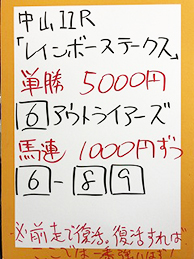 中山11R
「レインボーステークス」
単勝 5000円
6 アウトライアーズ
馬連 1000円ずつ
6-8 9
※前走で復活。復活すれば
ここでは一番強いはず！